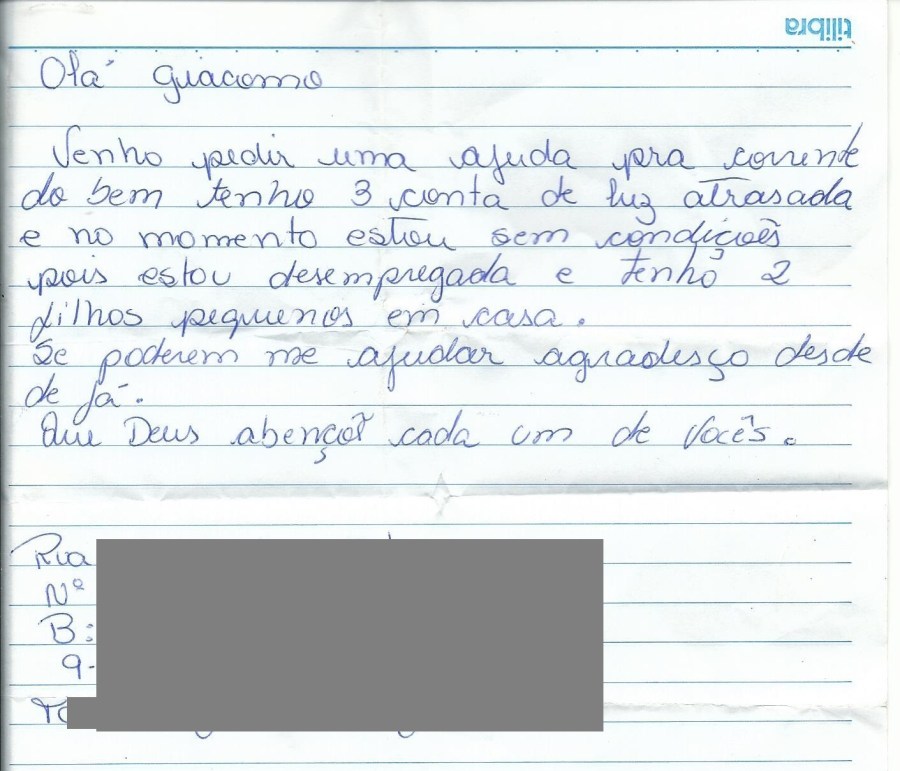 tilibra
Olá Giacomo
Venho pedir uma ajuda pra corrente
do bem tenho 3 conta de luz atrasada
e no momento estou sem condições
pois estou desempregada e tenho 2
filhos pequenos em casa.
Se poderem me ajudar agradesço desde
de já.
Que Deus abençoê cada um de Vocês.
Rua
Nº
B:
9-